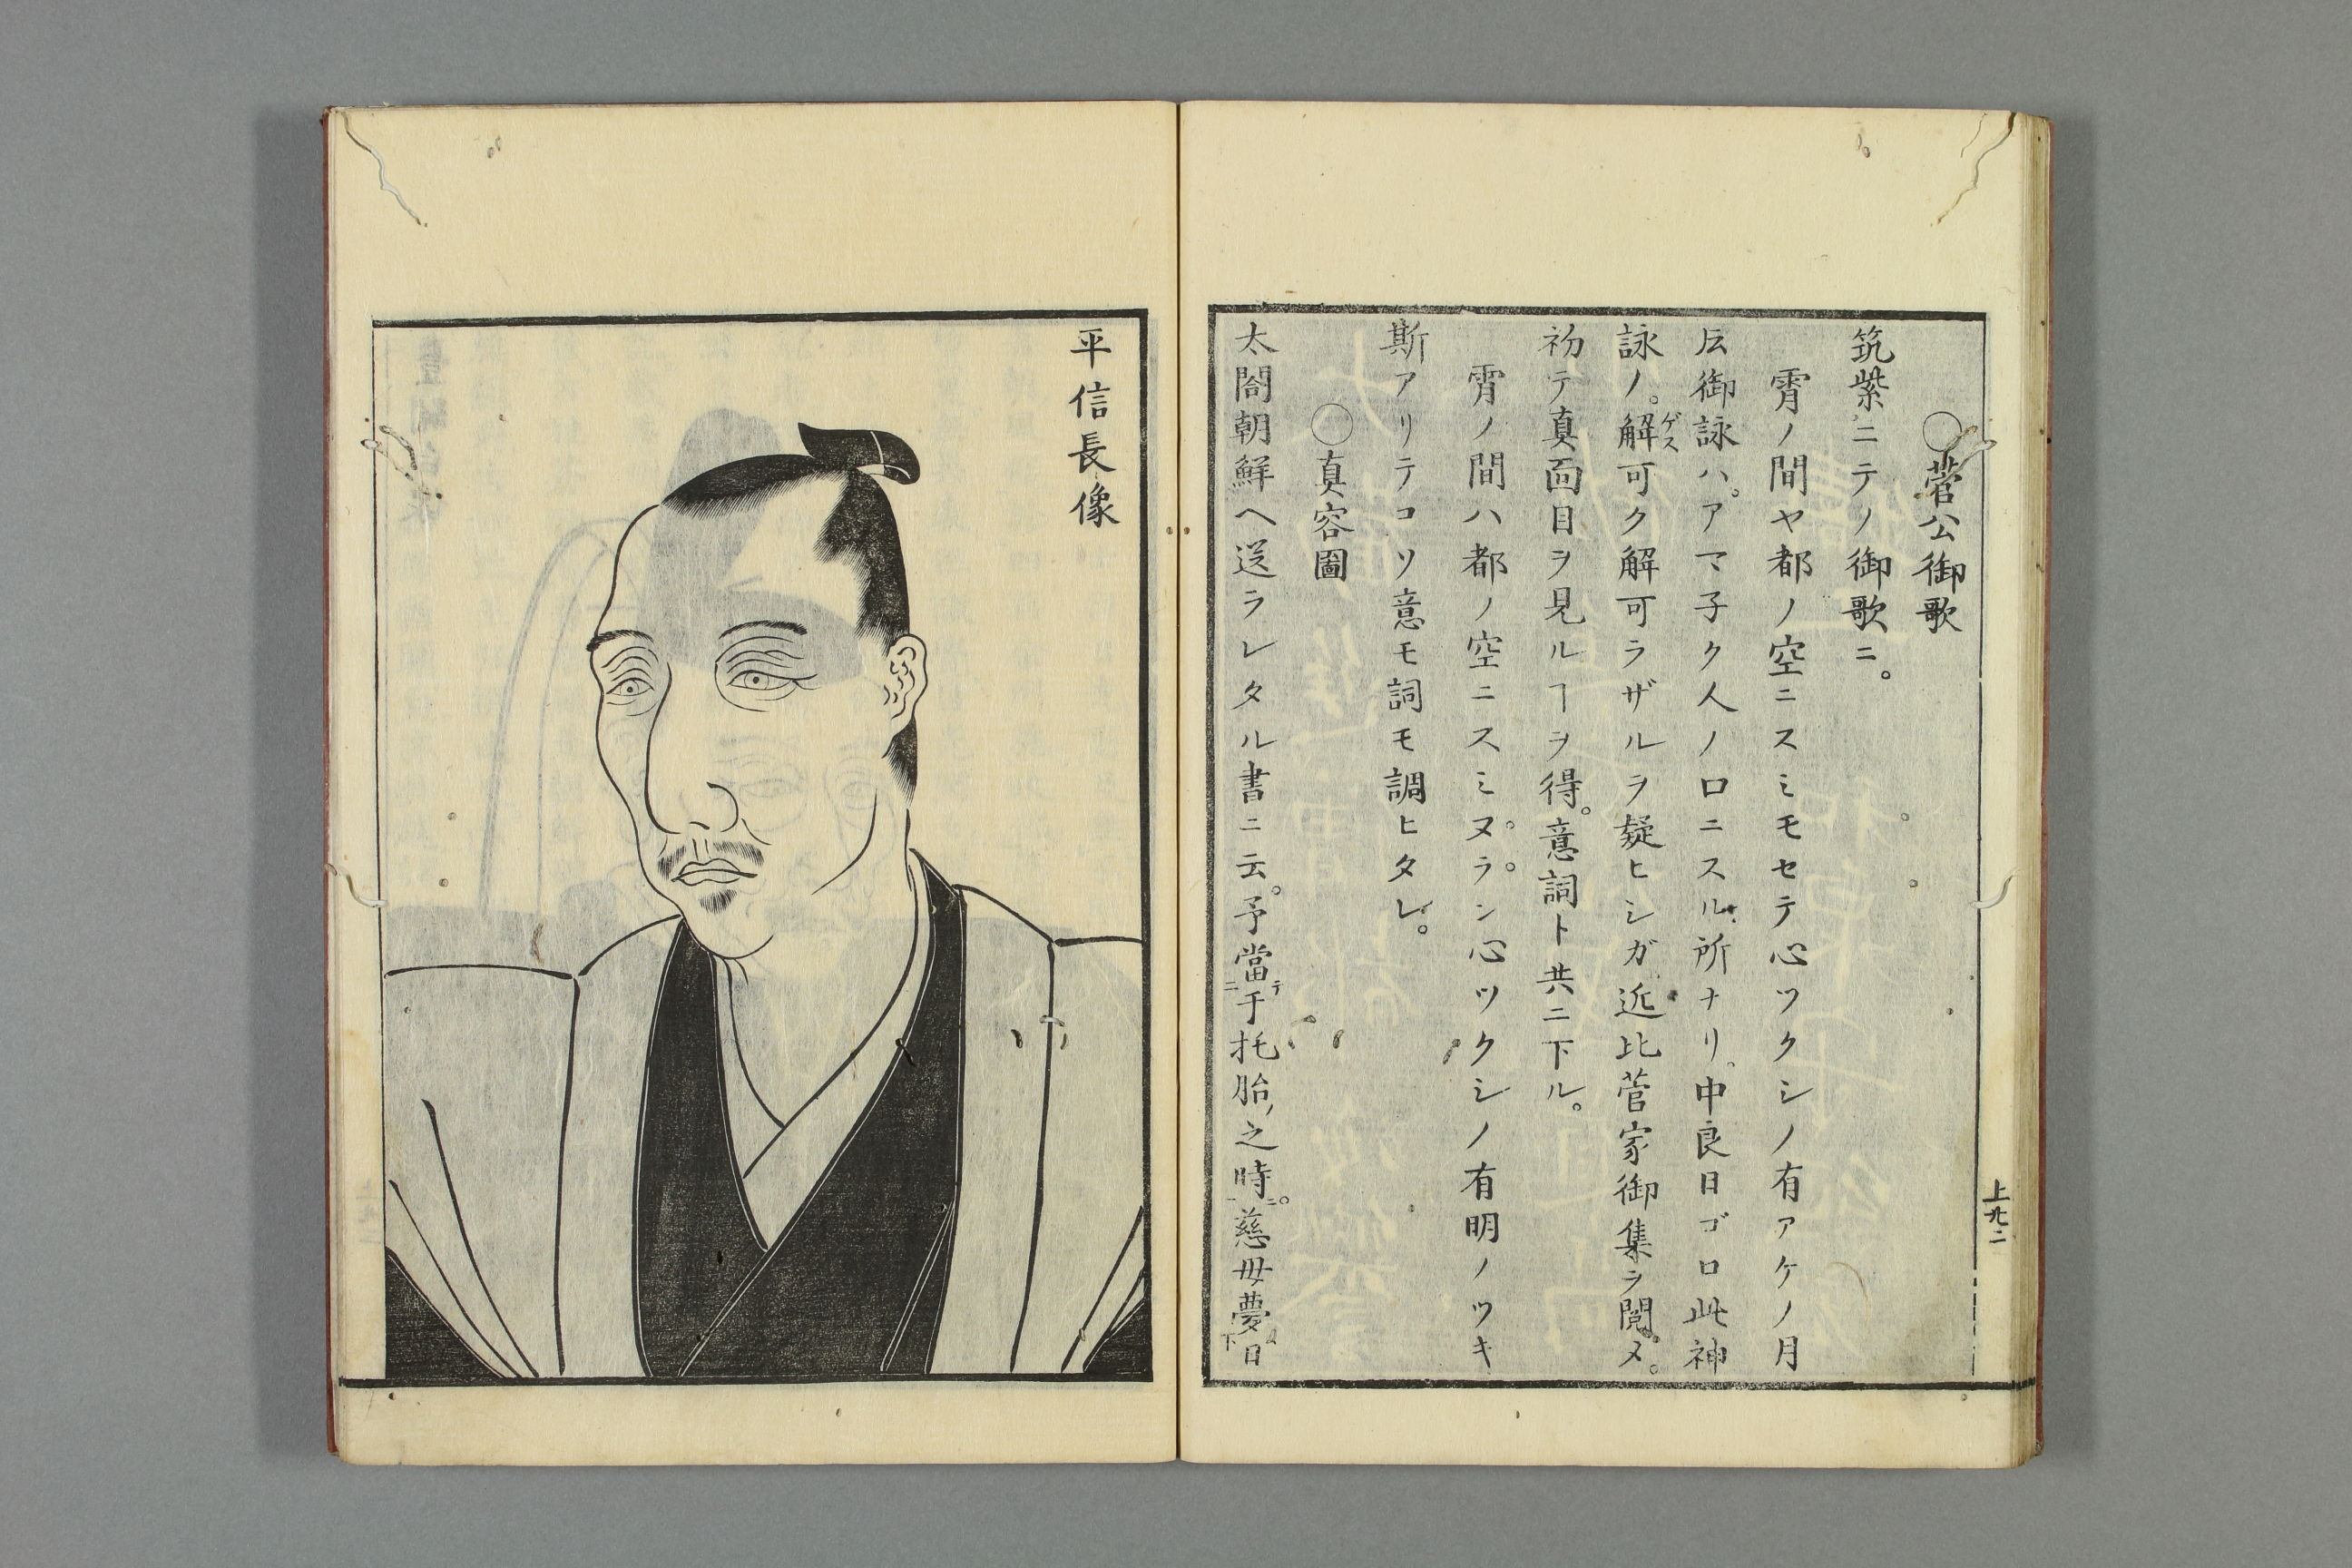 〇菅公御歌
筑紫ニテノ御歌ニ。
霄ノ間ヤ都ノ空ニスミモセテ心ツクシノ有アケノ月
𪜈御詠ハ。アマ子ク人ノ口ニスル所ナリ。中良日ゴロ此神
詠ノ。解可ク解可ラザルヲ疑ヒシガ近比菅家御集ヲ閲メ。
ゲス
初テ真面目ヲ見ルヿヲ得。意詞ト共ニ下ル。
霄ノ間ハ都ノ空ニスミヌ。ラ。ン心ツクシノ有明ノツキ
斯アリテコソ意モ詞モ調ヒタレ。
〇真容圖
太閤朝鮮ヘ送ラレタル書ニ云。予當テ二于托胎ノ之時ニ一。慈母夢日
上九二
平信長像